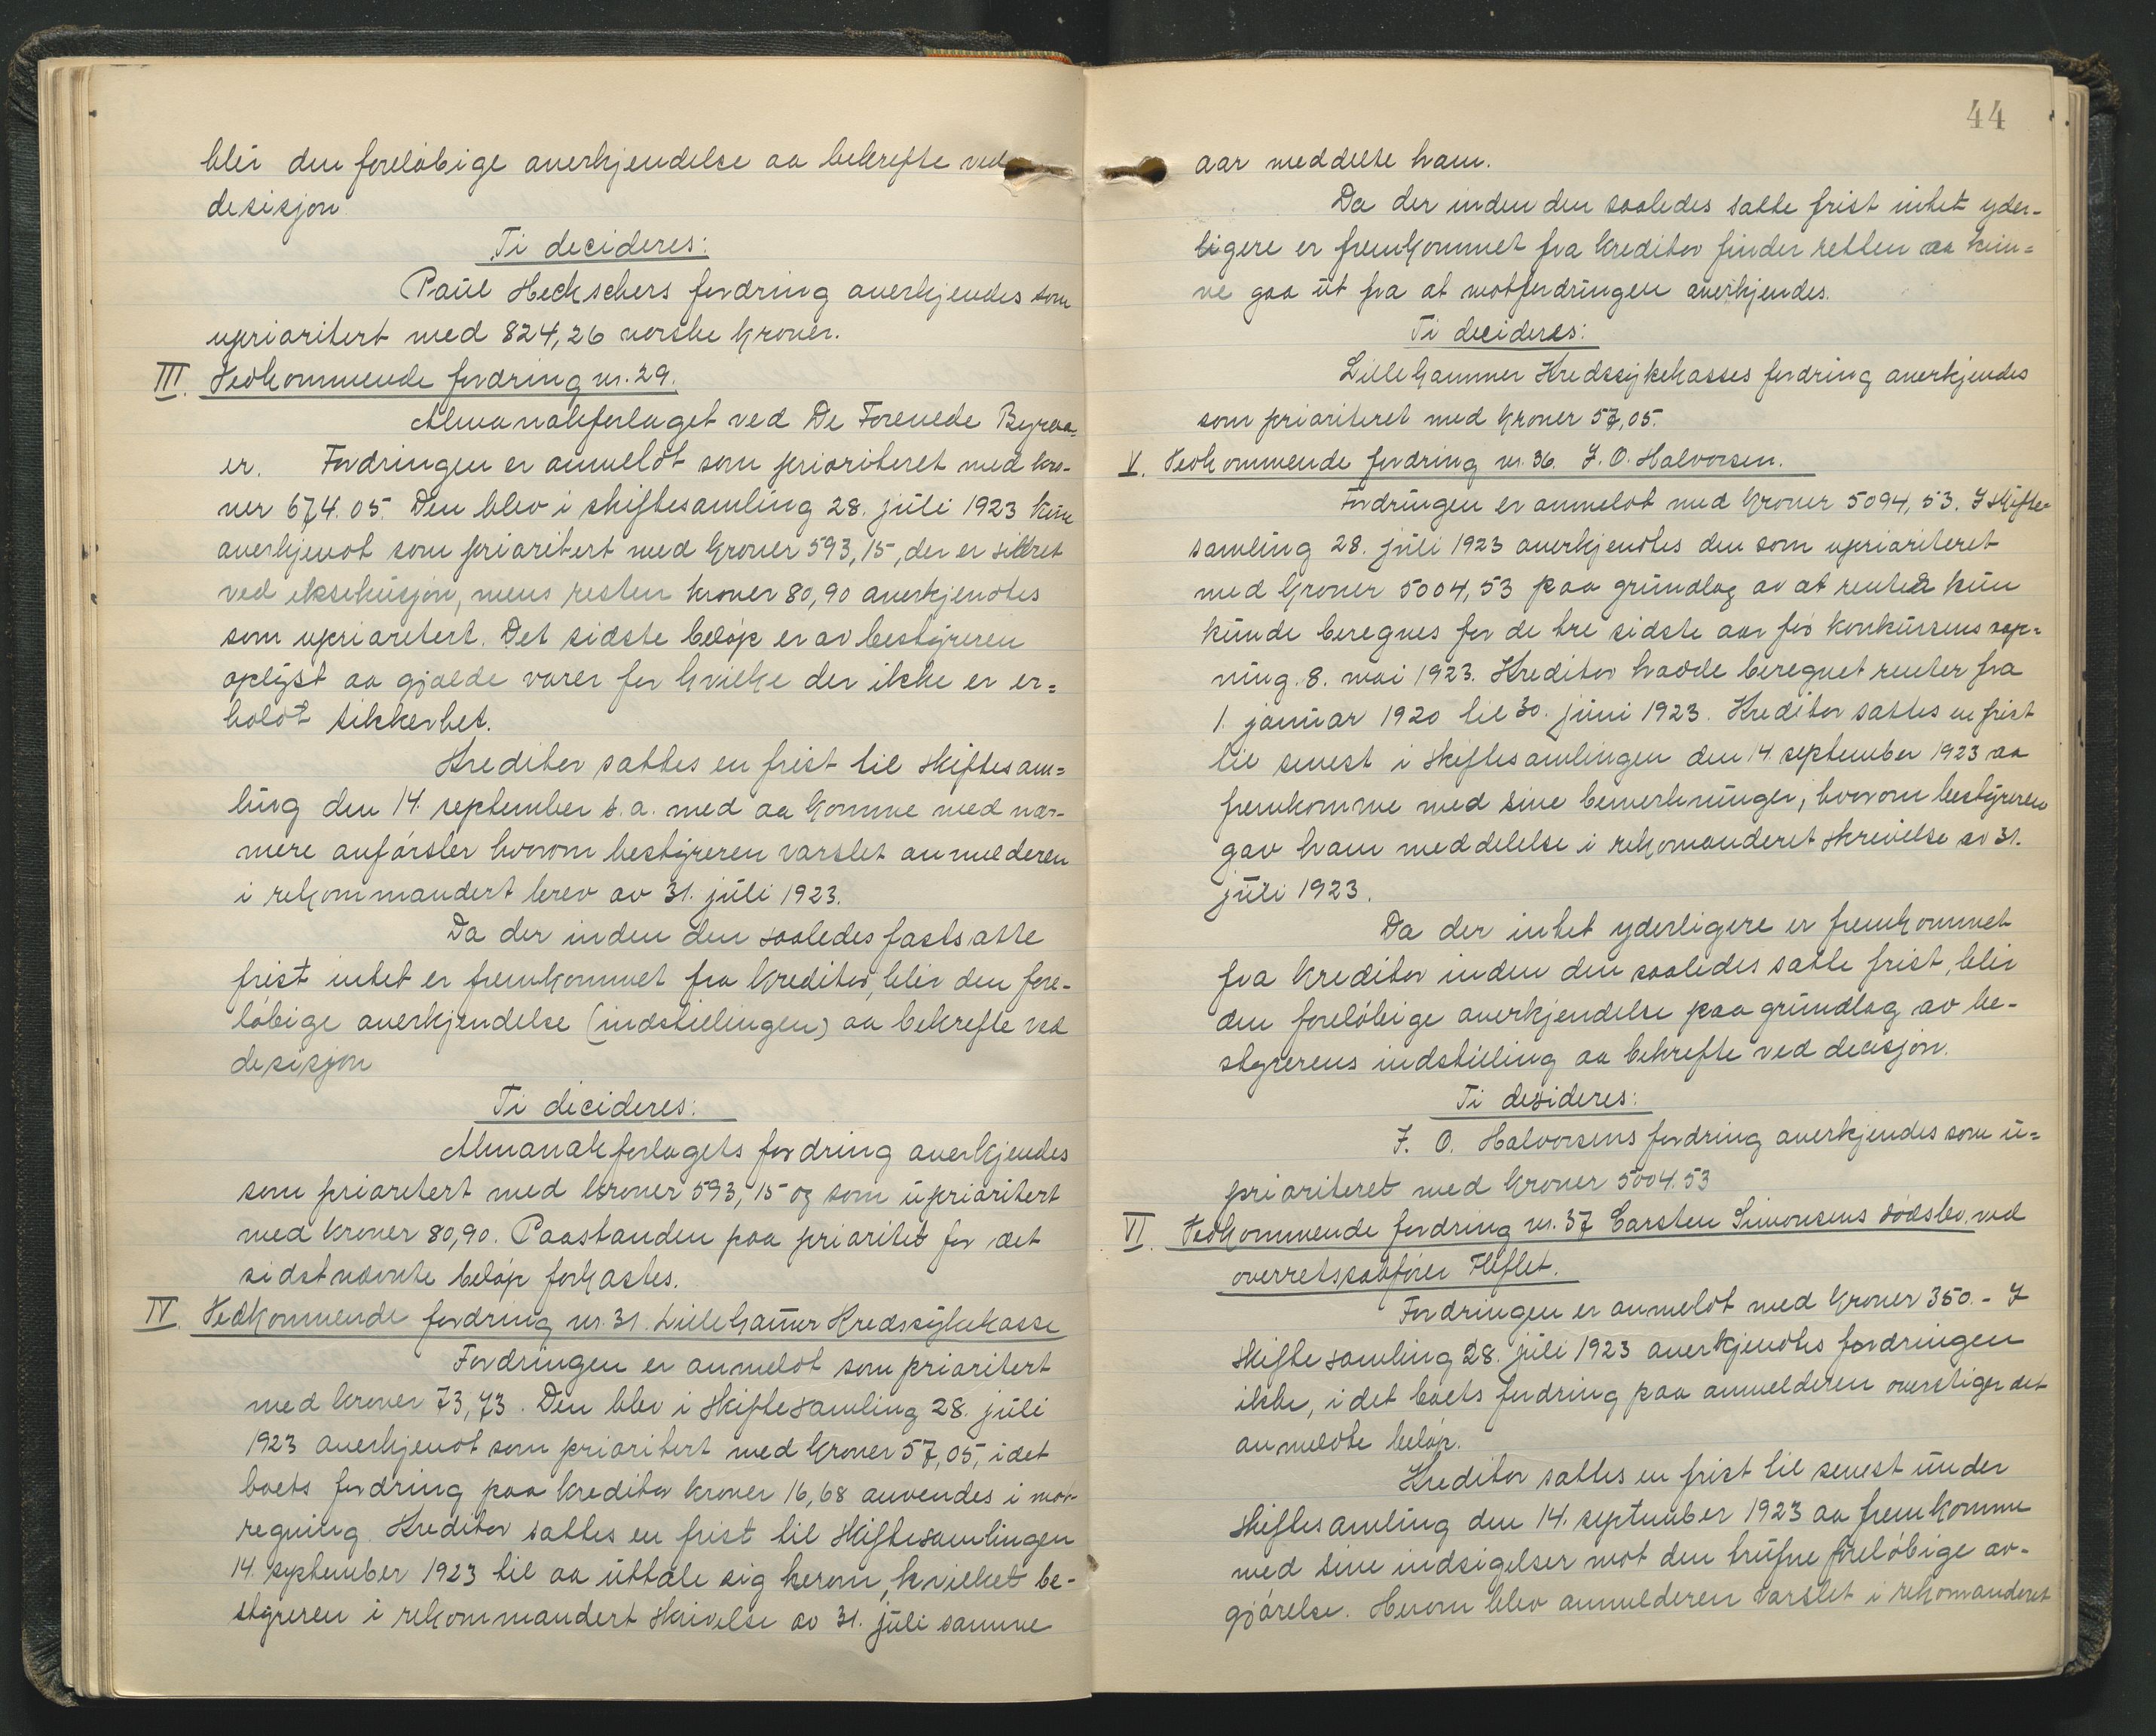 blir den foreløbige anerkjendelse aa bekrefte ved
desisjon
Ti decideres:
Paul Heckschers fordring anerkjendes som
uprioritert med 824,26 norske kroner.
III. Vedkommende fordring nr. 29.
Almanakforlaget ved De Forenede Byraa-
er. Fordringen er anmeldt som prioriteret med kro-
ner 674.05. Den blev i skiftesamling 28. juli 1923 kun
anerkjendt som prioritert med kroner 593,15, der er sikret
ved eksekusjon, mens resten kroner 80,90 anerkjendtes
som uprioritert. Det sidste beløp er av bestyreren
oplyst aa gjælde varer for hvilke der ikke er er=
holdt sikkerhet.
Kreditor sattes en frist til skiftesam=
ling den 14. september s.a. med aa komme med nær-
mere anførsler hvorom bestyreren varslet anmelderen
i rekommandert brev av 31. juli 1923.
Da der inden den saaledes fastsatte
frist intet er fremkommet fra kreditor, blir den fore-
løbige anerkjendelse (indstillingen) aa bekrefte ved
desisjon
Ti decideres:
Almanakforlagets fordring anerkjendes
som prioritert med kroner 593,15 og som uprioritert
med kroner 80,90. Paastanden paa prioritet for det
sidstnævnte beløp forkastes.
IV. Vedkommende fordring nr. 31. Lilleham̄er Kredssykekasse
Fordringen er anmeldt som prioritert
med kroner 73,73. Den blev i skiftesamling 28. juli
1923 anerkjendt som prioritert med kroner 57,05, idet
boets fordring paa kreditor kroner 16,68 anvendes i mot-
regning. Kreditor sattes en frist til skiftesamlingen
14. september 1923 til aa uttale sig herom, hvilket be-
styreren i rekommandert skrivelse av 31. juli samme
44
aar meddelte ham.
Da der inden den saaledes satte frist intet yder-
ligere er fremkommet fra kreditor finder retten aa kun-
ne gaa ut fra at motfordringen anerkjendes.
Ti decideres:
Lillehammer Kredssykekasses fordring anerkjendes
som prioriteret med kroner 57,05.
V. Vedkommende fordring nr. 36. J. O. Halvorsen.
Fordringen er anmeldt med kroner 5094,53. I skifte-
samling 28. juli 1923 anerkjendtes den som uprioriteret
med kroner 5004,53 paa grundlag av at renter kun
kunde beregnes for de tre sidste aar før konkursens aap=
ning 8. mai 1923. Kreditor hadde beregnet renter fra
1. januar 1920 til 30. juni 1923. Kreditor sattes en frist
til senest i skiftesamlingen den 14. september 1923 aa
fremkomme med sine bemerkninger, hvorom bestyreren
gav ham meddelelse i rekomanderet skrivelse av 31.
juli 1923.
Da der intet yderligere er fremkommet
fra kreditor inden den saaledes satte frist, blir
den foreløbige anerkjendelse paa grundlag av be-
styrerens indstilling aa bekrefte ved decisjon.
Ti desideres:
J. O. Halvorsens fordring anerkjendes som u=
prioriteret med kroner 5004.53
VI. Vedkommende fordring nr. 37 Carsten Simonsens dødsbo ved
overretssakfører Fliflet.
Fordringen er anmeldt med kroner 350.- I
skiftesamling 28. juli 1923 anerkjendtes fordringen
ikke, idet boets fordring paa anmelderen overstiger det
anmeldte beløp.
Kreditor sattes en frist til senest under
skiftesamling den 14. september 1923 aa fremkomme
med sine indsigelser mot den trufne foreløbige av-
gjørelse. Herom blev anmelderen varslet i rekomanderet